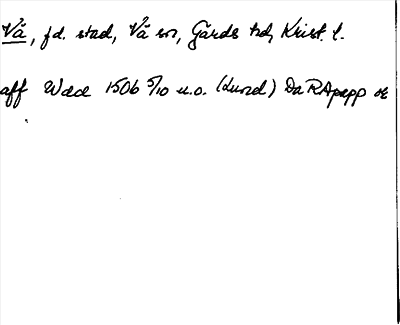 Vä, fd. stad, Vä sn, Gärds hd, Krist. l.
aff Wdd 1506 5/10 u.o. (Lund) Da RApapp or